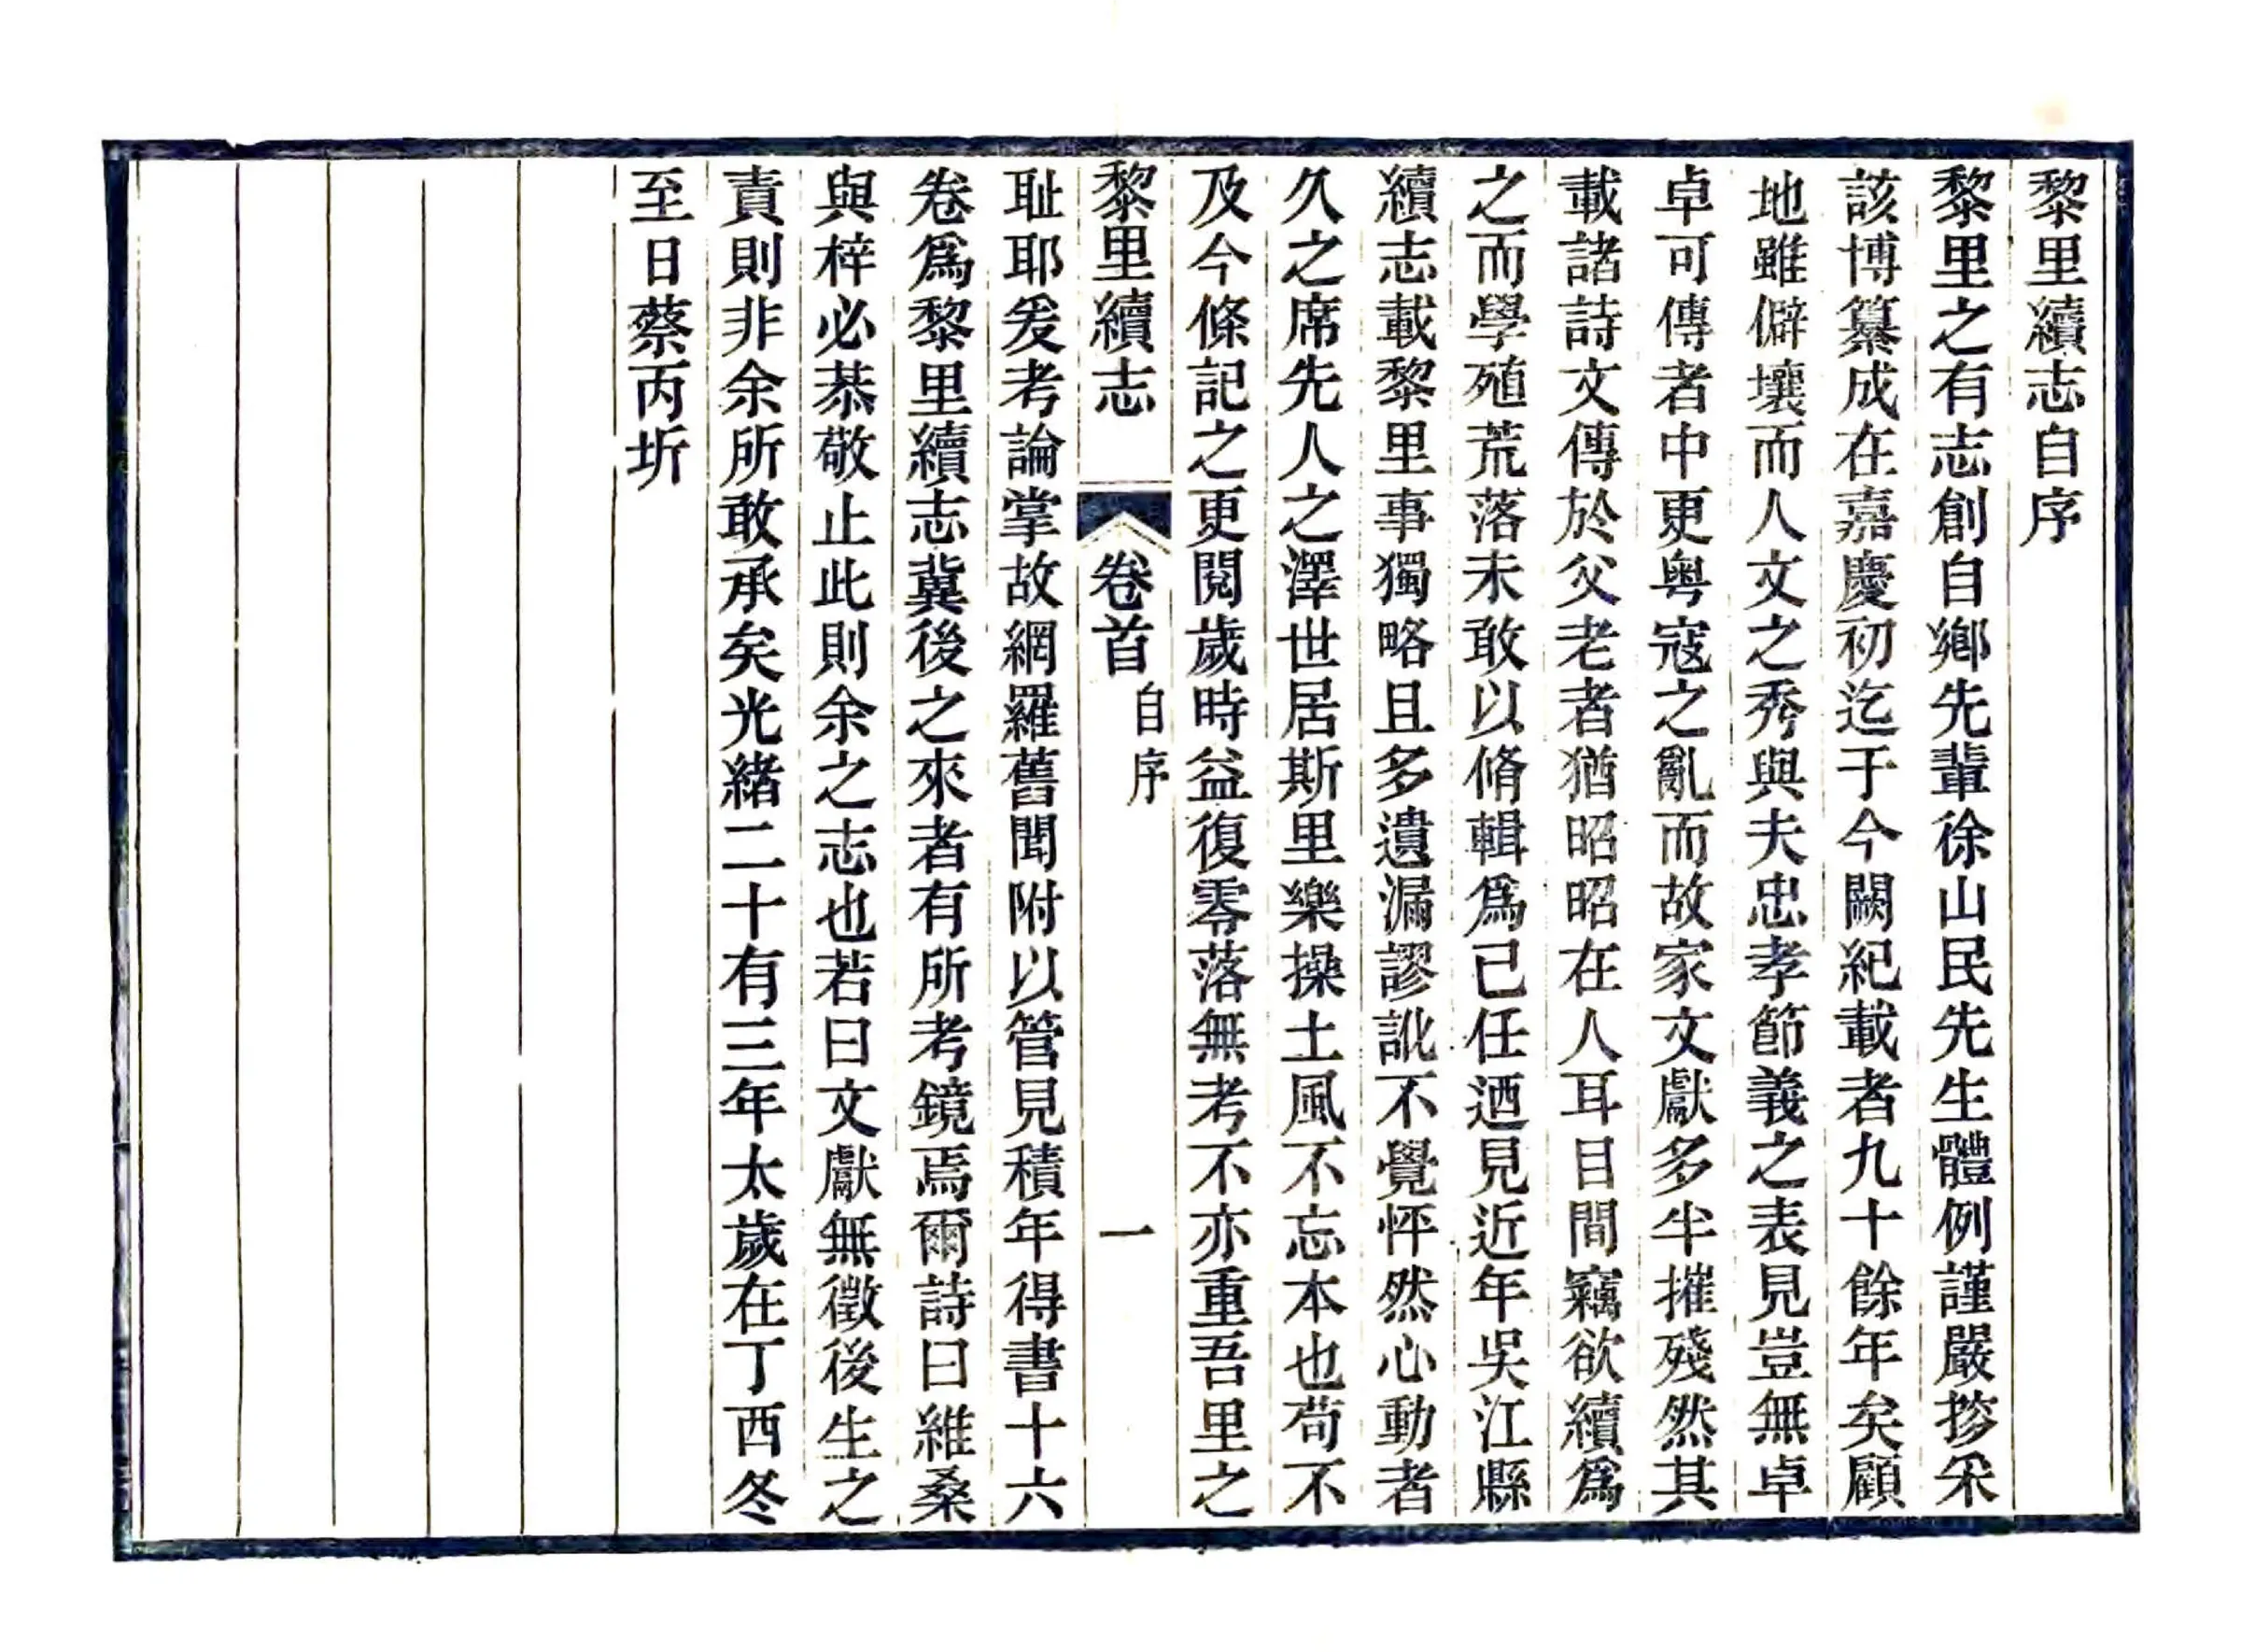 黎里續志自序
黎里之有志創自鄉先輩徐山民先生體例謹嚴捃采
該博纂成在嘉慶初迄于今闕紀載者九十餘年矣顧
地雖僻壤而人文之秀與夫忠孝節義之表見豈無卓
卓可傳者中更粤寇之亂而故家文獻多半摧殘然其
載諸詩文傳於父老者猶昭昭在人耳目間竊欲續爲
之而學殖荒落未敢以脩輯爲己任迺見近年吳江縣
續志載黎里事獨略且多遺漏謬訛不覺怦然心動者
久之席先人之澤世居斯里樂操土風不忘本也苟不
及今條記之更閱歲時益復零落無考不亦重吾里之
黎里續志 卷首 自序 一
耻耶爰考論掌故網羅舊聞附以管見積年得書十六
卷爲黎里續志冀後之來者有所考鏡焉爾詩曰維桑
與梓必恭敬止此則余之志也若曰文獻無徵後生之
責則非余所敢承矣光緒二十有三年太歲在丁酉冬
至日蔡丙圻